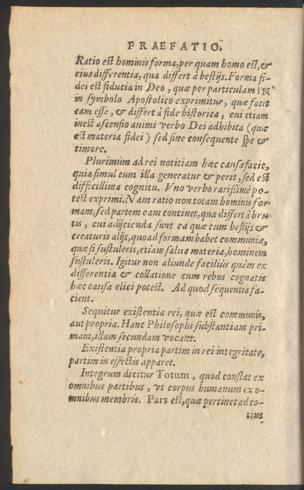 PRAEFATIO.
Ratio est hominis forma, per quam homo est, &
eius differentia, qua differt à bestijs. Forma fi-
dei est fiducia in Deo, quæ per particulam IN
in symbolo Apostolico exprimitur, quæ facit
eam esse, & differt à fide historica, cui etiam
inest ascensio animi verbo Dei adhibita (quæ
est materia fidei) sed sine consequente spe &
timore.
Plurimum ad rei notitiam hæc causa facit,
quia simul cum illa generatur & perit, sed est
difficillima cognitu. Vno verbo rarissimè po-
test exprimi. Nam ratio non totam hominis for-
mam, sed partem eam continet, qua differt à bru-
tis, cui adijcienda sunt ea quæ cum bestijs &
creaturis alijs, quoad formam habet communia,
quæ si sustuleris, etiam salua materia, hominem
sustuleris. Igitur non aliunde facilius quàm ex
differentia & collatione cum rebus cognatis
hæc causa elici potest. Ad quod sequentia fa-
cient.
Sequitur existentia rei, quæ est communis,
aut propria. Hanc Philosophi substantiam pri-
mam, illam secundam vocant.
Existentia propria partim in rei integritate,
partim in effectis apparet.
Integrum dicitur Totum, quod constat ex
omnibus partibus, vt corpus humanum ex o-
mnibus membris. Pars est, quæ pertinet ad to-
tius